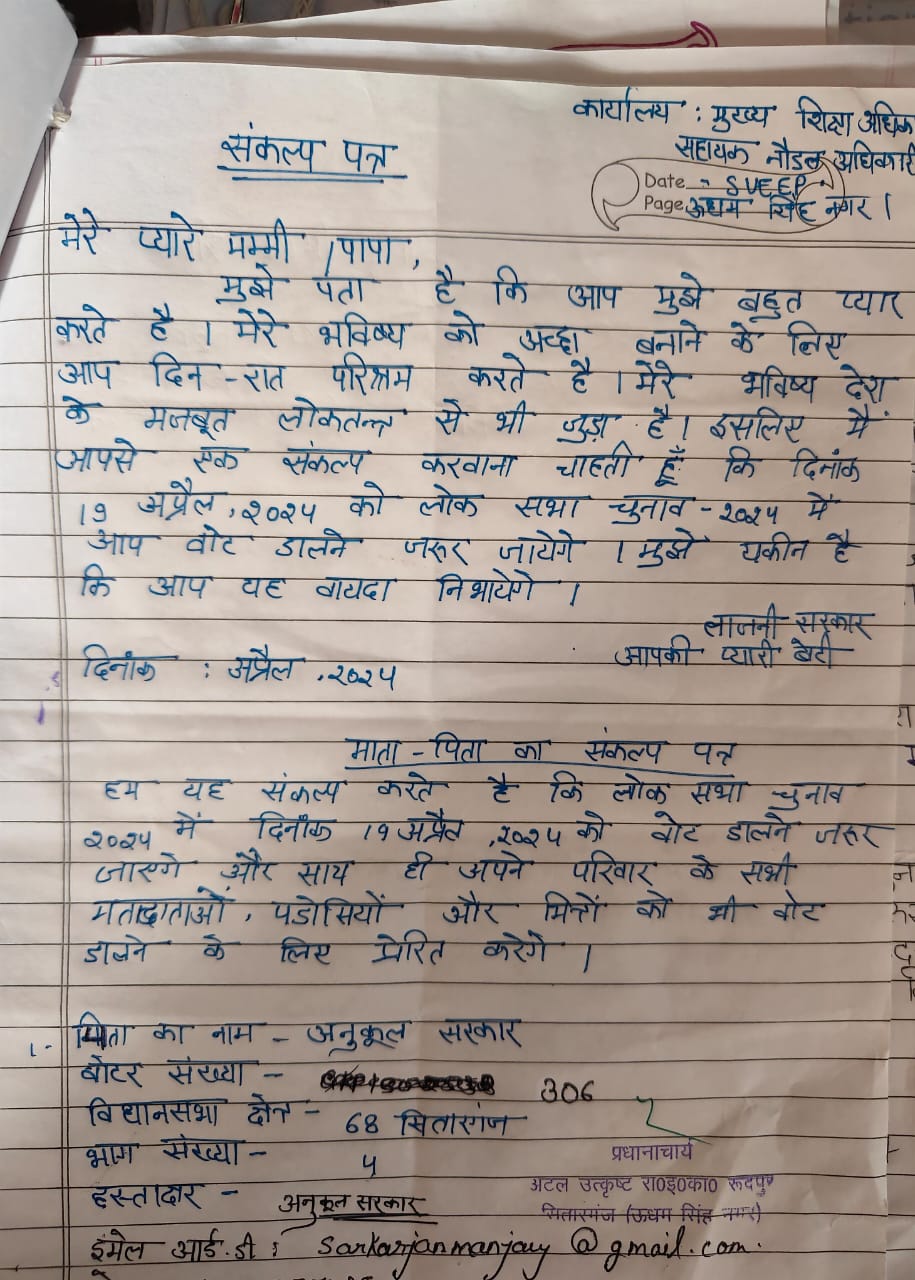 कार्यालय : मुख्य शिक्षा अधिक
सहायक नौडल अधिकारी
संकल्प पत्र
Date - SVEEP
Page ऊधम सिंह नगर ।
मेरे प्यारे मम्मी / पापा ,
मुझे पता है कि आप मुझे बहुत प्यार
करते है । मेरे भविष्य को अच्छा बनाने के लिए
आप दिन - रात परिश्रम करते है । मेरे भविष्य देश
के मजबूत लोकतन्त्र से भी जुड़ा है । इसलिए मैं
आपसे एक संकल्प करवाना चाहती हूँ कि दिनांक
19 अप्रैल , २०२५ को लोक सभा चुनाव - २०२५ में
आप वोट डालने जरूर जायेगे । मुझे यकीन है
कि आप यह वायदा निभायेगे ।
लाजनी सरकार
आपकी प्यारी बेटी
दिनांक : अप्रैल , २०२५
माता - पिता का संकल्प पत्र
हम यह संकल्प करते है कि लोक सभा चुनाव
२०२५ में दिनांक 19 अप्रैल , २०२५ को वोट डालने जरूर
जाएगे और साथ ही अपने परिवार के सभी
मतादाताओं , पडोसियों और मित्रों को भी वोट
डालने के लिए प्रेरित करेगे ।
1. पिता का नाम - अनुकूल सरकार
वोटर संख्या - 306
विधानसभा क्षेत्र - 68 सितारगंज
भाग संख्या - 4
प्रधानाचार्य
हस्ताक्षर - अनुकूल सरकार
अटल उत्कृष्ट रा०इ०का० रूदपुर
सितारगंज (ऊधम सिंह नगर)
ईमेल आई.डी : sarkarjanmanjay @ gmail.com.